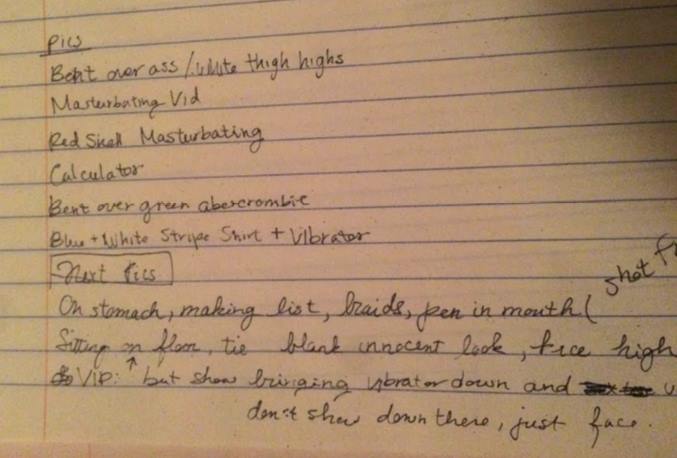 Pics
Bent over ass / white thigh highs
Masturbating Vid
Red Masturbating
Calculator
Bent over green abercrombie
Blue + White Stripe Shirt + Vibrator
Next Pics
On stomach, making list, braids, pen in mouth (
shot
Sitting on floor, tie blank innocent look, high
Vid: but show bringing vibrator down and
don't show down there, just face.